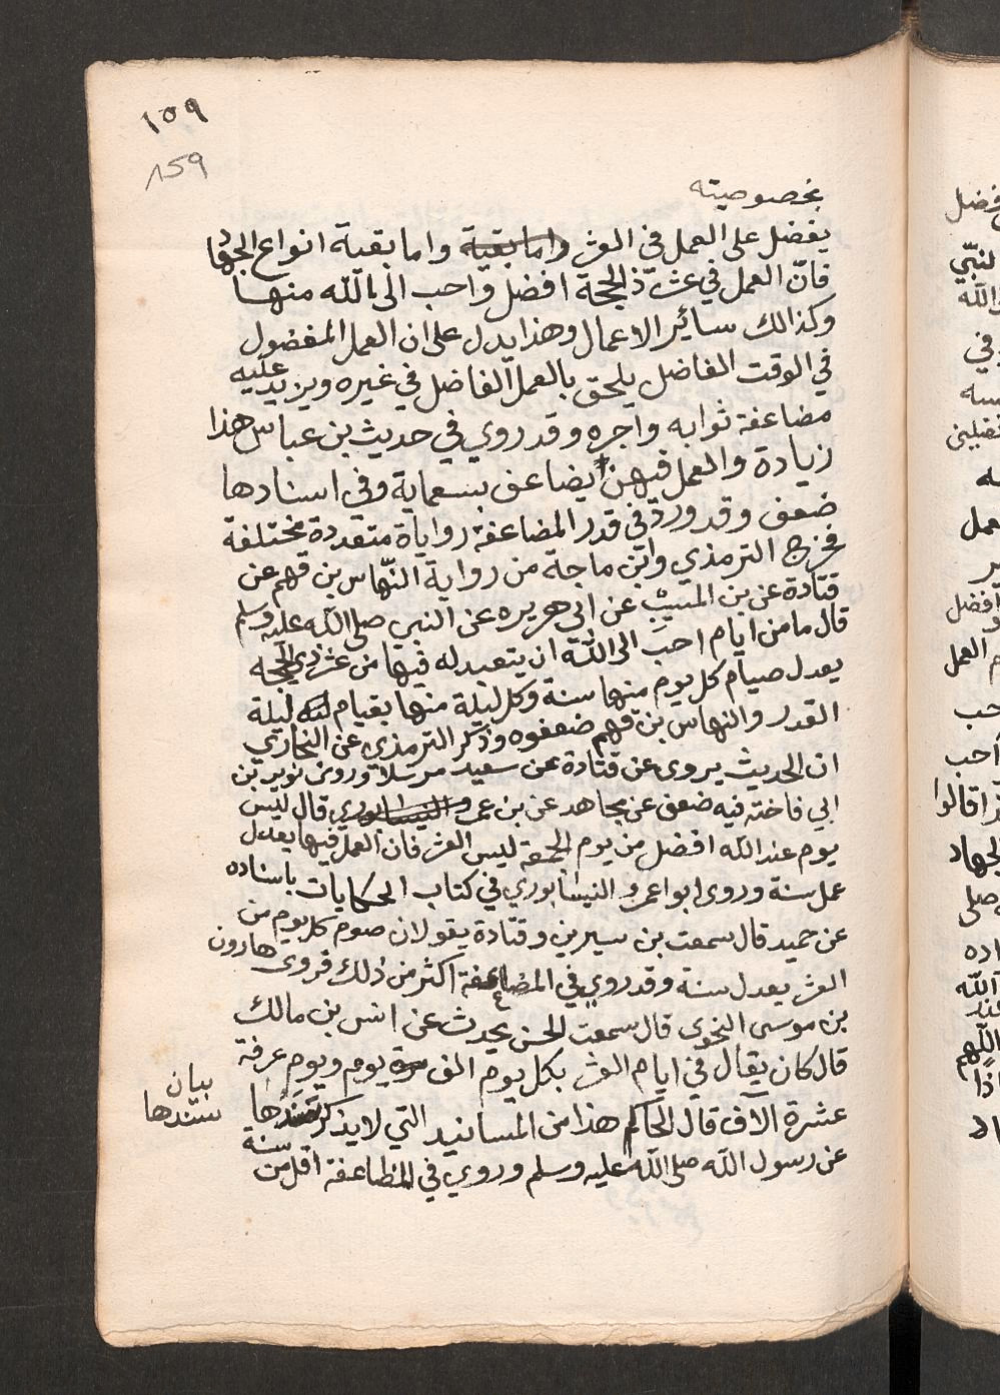 ١٥٩
159
بخصوصيته
يفضل على العمل في العشر واما بقية واما بقية انواع الجهاد
فانّ العمل في عشر ذالحجة افضل واحب الى الله منها
وكذالك سائير الاعمال وهذا يدل على ان العمل المفضول
في الوقت الفاضل يلحق بالعمل الفاضل في غيره ويزيد عليه
مضاعفة ثوابه واجره وقد روي في حديث بن عباس هذا
زيادة والعمل فيهن يضاعف بسعماية وفي اسنادها
ضعف وقد ورد في قدر المضاعفة روياة متعددة مختلفة
فخرج الترمذي وابن ماجة من رواية النّهاس بن قهم عن
قتادة عن بن المسيّب عن ابى هريره عن النبي صلى الله عليه وسلم
قال ما من ايام احب الى الله ان يتعبد له فيها من عشر ذي الحجه
يعدل صيام كل يوم منها سنة وكل ليلة منها بقيام ليلة
القدر والنهاس بن قهم ضعفوه وذكر الترمذي عن البخاري
ان الحديث يروى عن قتادة عن سعيد مرسلا وروى ثوير بن
ابي فاخته فيه ضعف عن مجاهد عن بن عمر والنيسابوري قال ليس
يوم عند الله افضل من يوم الجمعة ليس العشر فان العمل فيها يعدل
عمل سنة وروى ابوا عمرو النيسابوري في كتاب الحكايات باسناده
عن حميد قال سمعت بن سيرين وقتادة يقولان صوم كل يوم من
العشر يعدل سنة وقد روي في المضاعفة اكثر من ذلك فروى هارون
بن موسى النحوى قال سمعت الحسن يحدث عن انس بن مالك
قال كان يقال في ايام العشر بكل يوم الف يوم ويوم عرفة
عشرة الآف قال الحاكم هذا من المسانيد التي لا يذكر سندها
بيان
سندها
عن رسول الله صلى الله عليه وسلم وروي في المظاعفة اقل من سنة